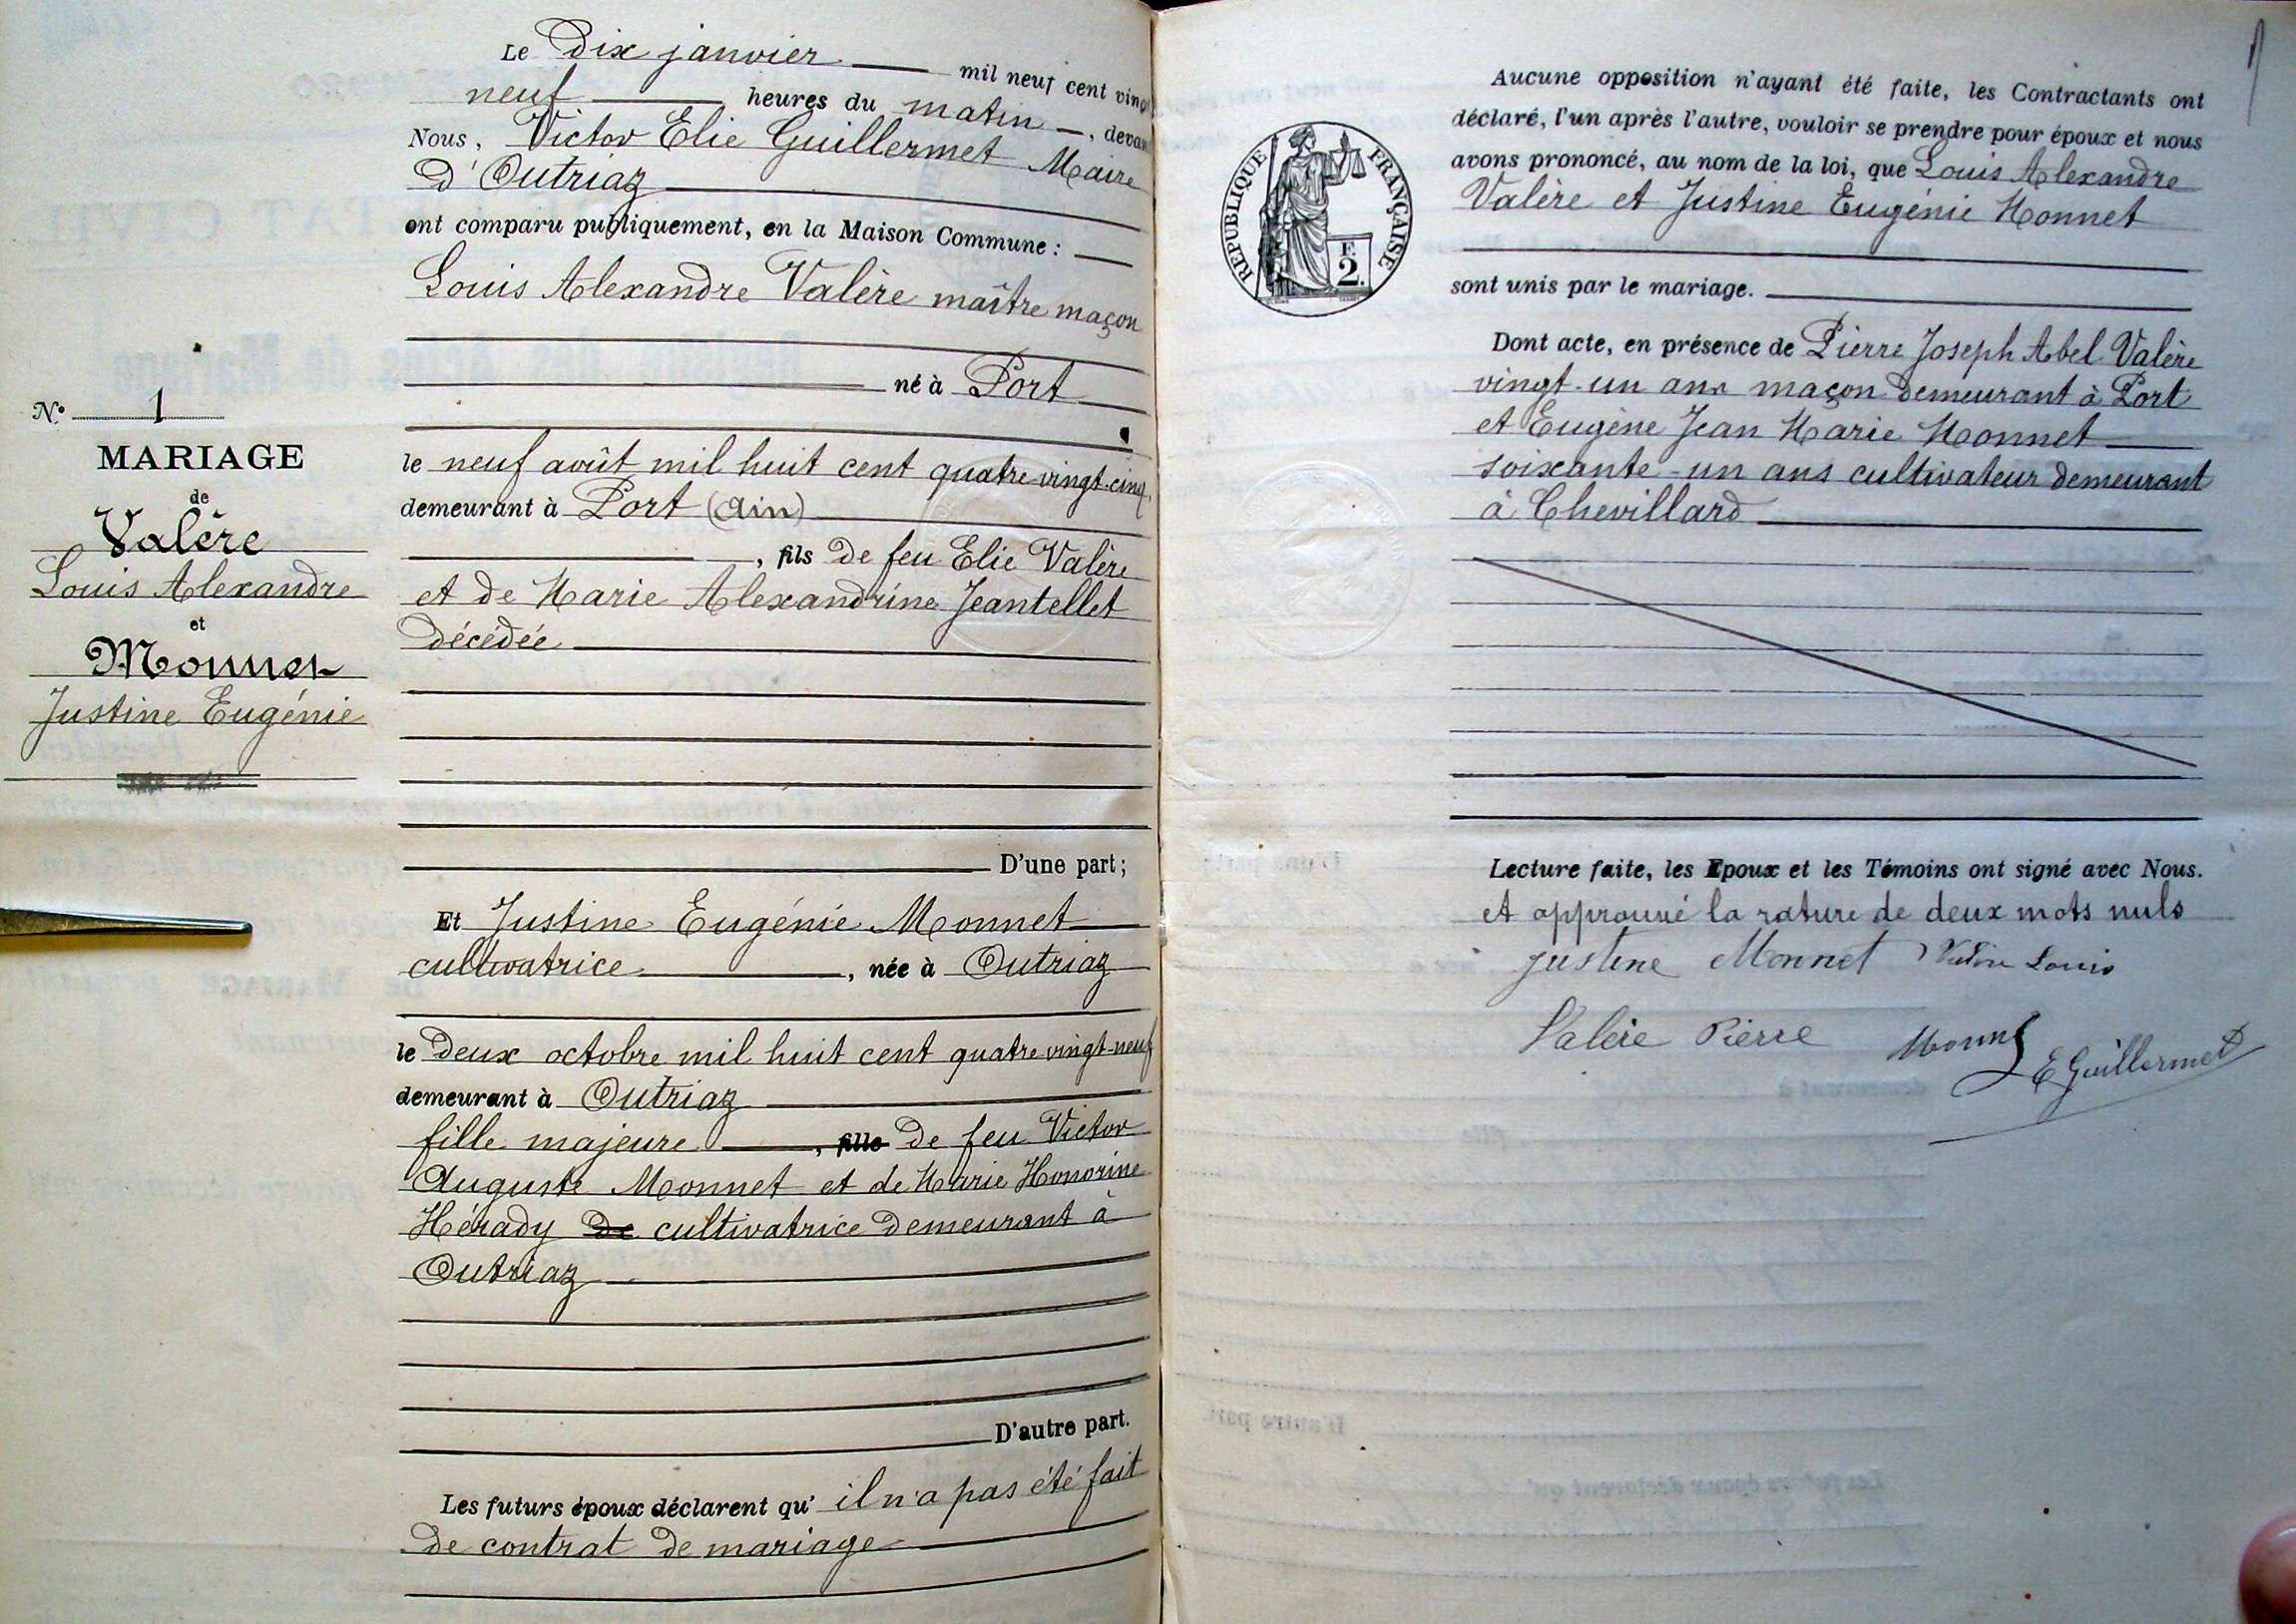 Le Dix janvier mil neuf cent vingt
neuf heures du matin, devant
Nous, Victor Elie Guillermet Maire
d'Outriaz
ont comparu publiquement, en la Maison Commune :
Louis Alexandre Valère maître maçon
né à Port
le neuf août mil huit cent quatre-vingt-cinq
demeurant à Port (Ain)
, fils de feu Elie Valère
et de Marie Alexandrine Jeantellet
décédée
D'une part;
Et Justine Eugénie Monnet
cultivatrice, née à Outriaz
le deux octobre mil huit cent quatre vingt-neuf
demeurant à Outriaz
fille majeure, fille de feu Victor
Auguste Monnet et de Marie Honorine
Hérady de cultivatrice demeurant à
Outriaz
D'autre part.
Les futurs époux déclarent qu' il n'a pas été fait
de contrat de mariage
N° 1
MARIAGE
de
Valère
Louis Alexandre
et
Monnet
Justine Eugénie
RÉPUBLIQUE FRANÇAISE
F.
2.
Aucune opposition n'ayant été faite, les Contractants ont
déclaré, l'un après l'autre, vouloir se prendre pour époux et nous
avons prononcé, au nom de la loi, que Louis Alexandre
Valère et Justine Eugénie Monnet
sont unis par le mariage.
Dont acte, en présence de Pierre Joseph Abel Valère
vingt-un ans maçon demeurant à Port
et Eugène Jean Marie Monnet
soixante-un ans cultivateur demeurant
à Chevillard
Lecture faite, les Epoux et les Témoins ont signé avec Nous.
et approuvé la rature de deux mots nuls
Justine Monnet Valère Louis
Valère Pierre Monnet
E Guillermet